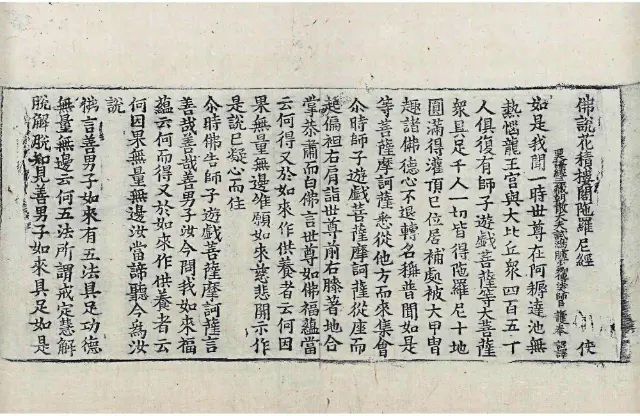 佛說花積樓閣陁羅尼經 俠
西天譯經三藏朝散大夫試鴻臚少卿傳法師臣施護奉 詔譯
如是我聞一時世尊在阿耨達池無
熱惱龍王宮與大比丘衆四百五十
人俱復有師子遊戲菩薩等大菩薩
衆且足千人一切皆得陁羅尼十地
圓滿得灌頂已位居補處被大甲冑
趣諸佛德心不退轉名稱普聞如是
等菩薩摩訶薩悉從他方而來集會
尒時師子遊戲菩薩摩訶薩從座而
起偏袒右肩詣世尊前右膝著地合
掌恭肅而白佛言世尊如佛福蘊當
云何得又於如來作供養者云何因
果無量無邊唯願如來慈悲開示作
是說已凝心而住
尒時佛告師子遊戲菩薩摩訶薩言
善哉善哉善男子汝今問我如來福
蘊云何而得又於如來作供養者云
何因果無量無邊汝當諦聽今爲汝
說
佛言善男子如來有五法具足功德
無量無邊云何五法所謂戒定慧解
脫解脫知見善男子如來具足如是